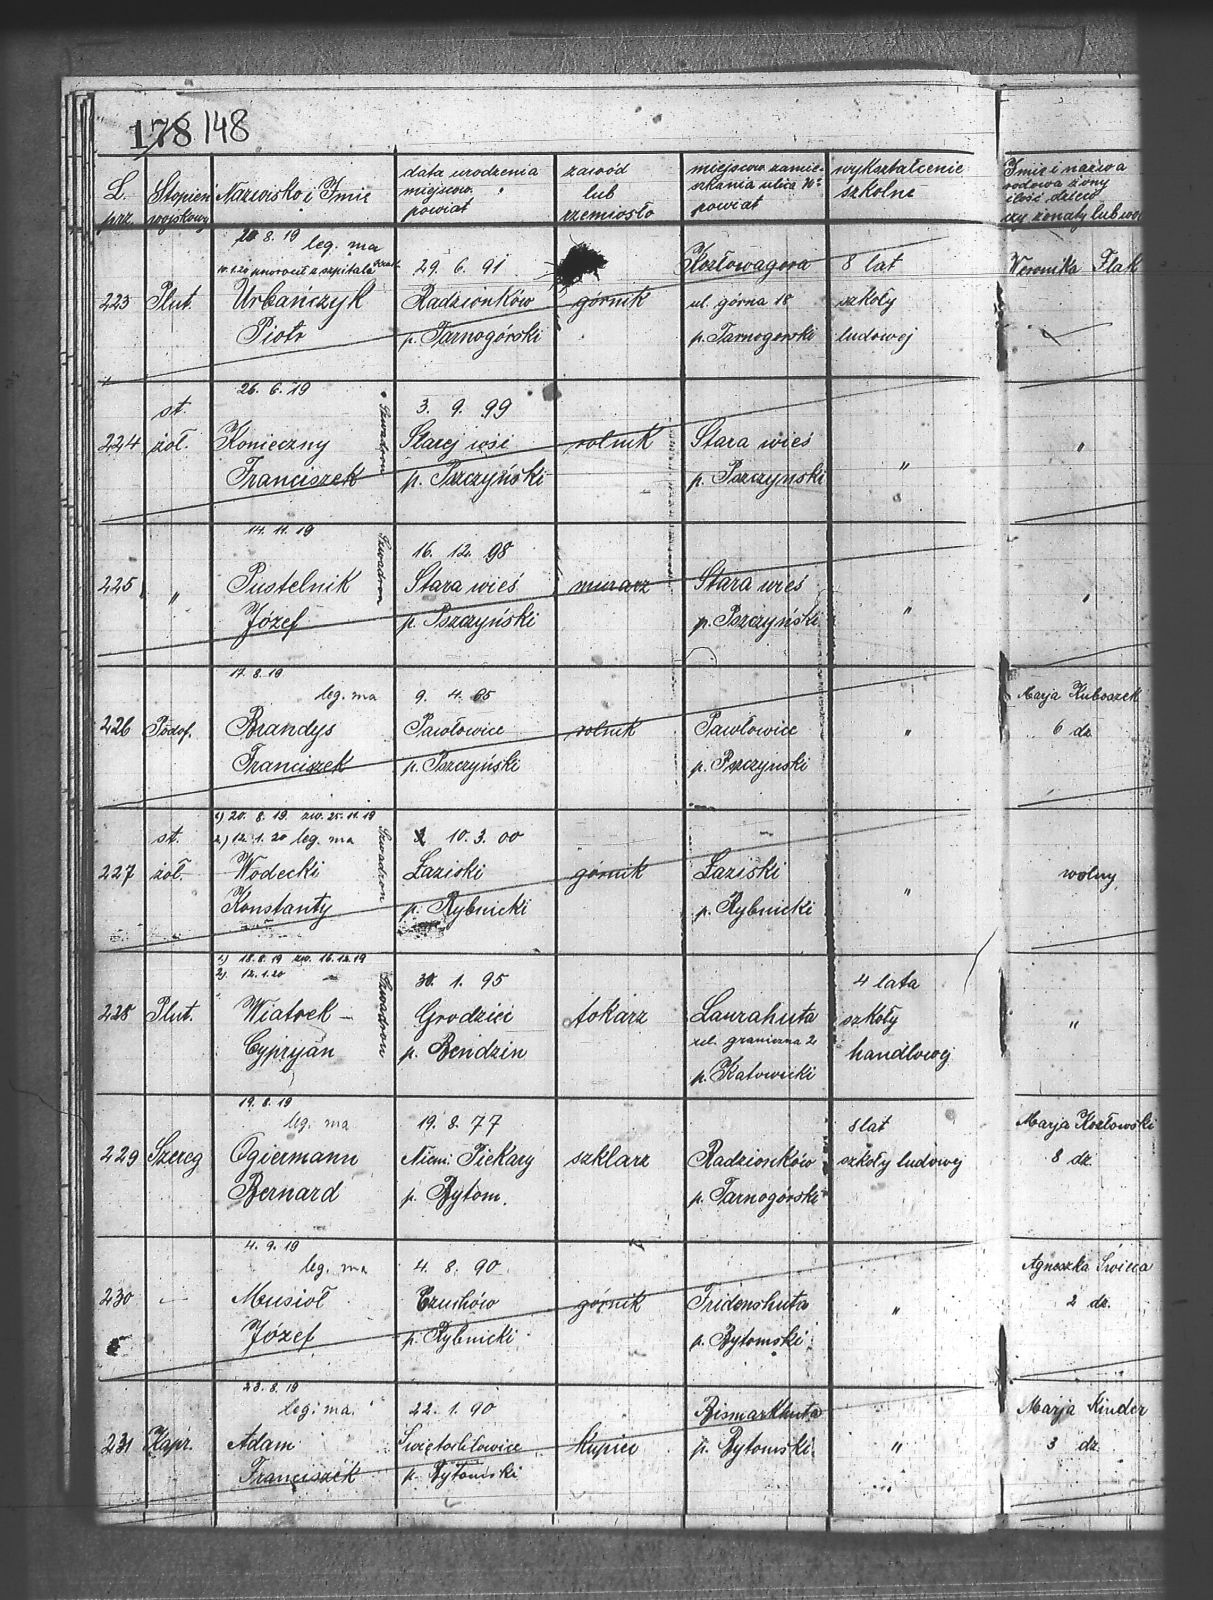 178 148
L. prz. Stopień wojskowy Nazwisko i Imię data urodzenia miejscow. powiat zawód lub rzemiosło miejscow. zamieszkania ulica № powiat wykształcenie szkolne Imię i nazwa rodowa żony ilość dzieci czy żonaty lub wol
20 8. 19 leg. ma
powrócił z szpitala 29. 6. 91 Kozłowagora 8 lat Weronika Flak
223 Plut. Urbańczyk Radzionków górnik ul. górna 18 szkoły
Piotr p. Tarnogórski p. Tarnogorski ludowej
26. 6. 19
st. Szwadron 3. 9. 99
224 żoł. Konieczny Starej wsi rolnik Stara wieś "
Franciszek p. Pszczyński p. Pszczynski "
14. 11. 19
Szwadron 16. 12. 98
225 " Pustelnik Stara wieś murarz Stara wieś "
Józef p. Pszczyński p. Pszczyński "
17. 8. 19
leg. ma 9. 4. 85 Marja Kuboszek
226 Podof. Brandys Pawłowice rolnik Pawłowice " 6 dz.
Franciszek p. Pszczyński p. Pszczynski
1) 20. 8. 19. zw. 25. 11. 19
st. 2) 12. 1. 20 leg. ma Szwadron 10. 3. 00
227 żoł. Wodecki Łaziski górnik Łaziski " wolny
Konstanty p. Rybnicki p. Rybnicki
1) 18. 8. 19 zw. 16. 12. 19
2) 12. 1. 20 Szwadron 30. 1. 95 4 lata
228 Plut. Wiatrek Grodziec tokarz Laurahuta szkoły "
Cypryjan p. Bendzin ul. graniczna 2 handlowej
p. Katowicki
19. 8. 19
leg. ma 19. 8. 77 8 lat Marja Kozłowski
229 Szereg Ogiermann Niem. Piekary szklarz Radzionków szkoły ludowej 8 dz.
Bernard p. Bytom. p. Tarnogórski
4. 9. 19
leg. ma 4. 8. 90 Agnoszka Swieca
230 — Musioł Czuchów górnik Fridenshuta " 2 dz.
Józef p. Rybnicki p. Bytomski
23. 8. 19
leg. ma 22. 1. 90 Bismarkhuta Marja Kinder
231 Kapr. Adam Swiętochłowice kupiec p. Bytomski " 3 dz.
Franciszek p. Bytomski "